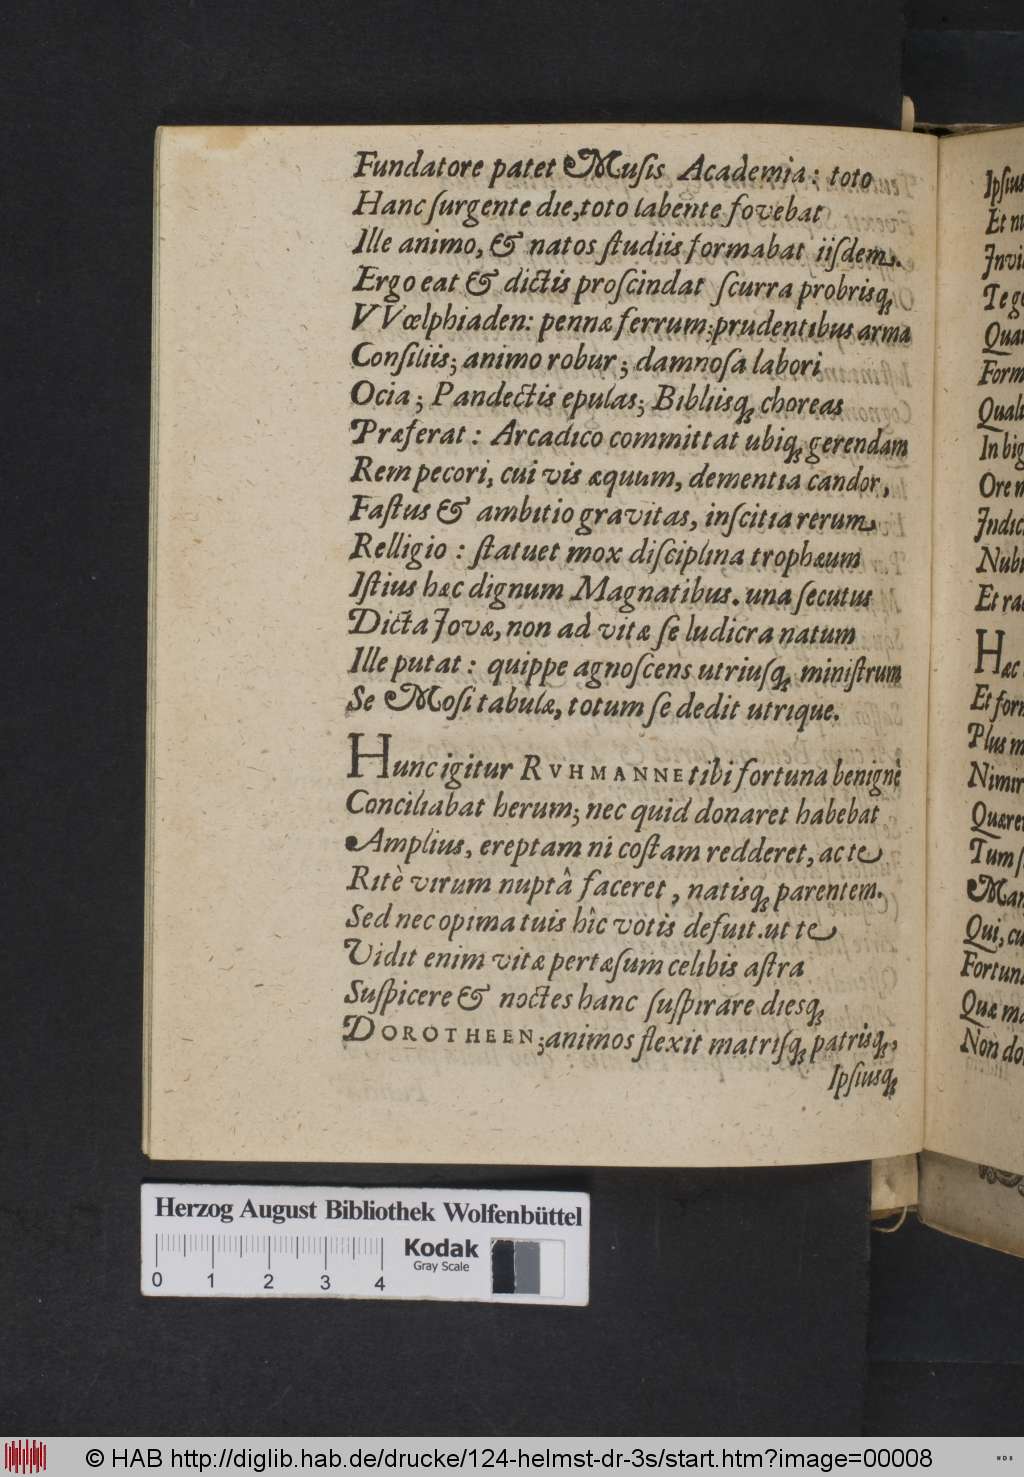 Fundatore patet Muſis Academia: toto
Hanc ſurgente die, toto labente fovebat
Ille animo, & natos ſtudiis formabat iiſdem.
Ergo eat & dictis proſcindat ſcurra probrisq;
VVœlphiaden: pennæ ferrum; prudentibus arma
Conſiliis; animo robur; damnoſa labori
Ocia; Pandectis epulas; Bibliisq; choreas
Præferat: Arcadico committat ubiq; gerendam
Rem pecori, cui vis æquum, dementia candor,
Faſtus & ambitio gravitas, inſcitia rerum
Relligio: ſtatuet mox diſciplina trophæum
Iſtius hæc dignum Magnatibus. una ſecutus
Dicta Jovæ, non ad vitæ ſe ludicra natum
Ille putat: quippe agnoſcens utriuſq; miniſtrum
Se Moſi tabulæ, totum ſe dedit utrique.
Hunc igitur RVHMANNE tibi fortuna benignè
Conciliabat herum; nec quid donaret habebat
Amplius, ereptam ni coſtam redderet, ac te
Ritè virum nuptâ faceret, natisq; parentem.
Sed nec opima tuis hîc votis defuit. ut te
Vidit enim vitæ pertæſum celibis aſtra
Suſpicere & noctes hanc ſuſpirare diesq;
DOROTHEEN; animos flexit matriſq; patrisq;,
Ipſiusq;
Ipſius
Et nu
Invi
Te g
Qua
Form
Quali
In big
Ore n
Judic
Nubi
Et ra
Hæc
Et for
Plus m
Nimir
Quære
Tum ſ
Man
Qui, cu
Fortun
Quæ ma
Non do
Herzog August Bibliothek Wolfenbüttel
Kodak
Gray Scale
0 1 2 3 4
© HAB http://diglib.hab.de/drucke/124-helmst-dr-3s/start.htm?image=00008